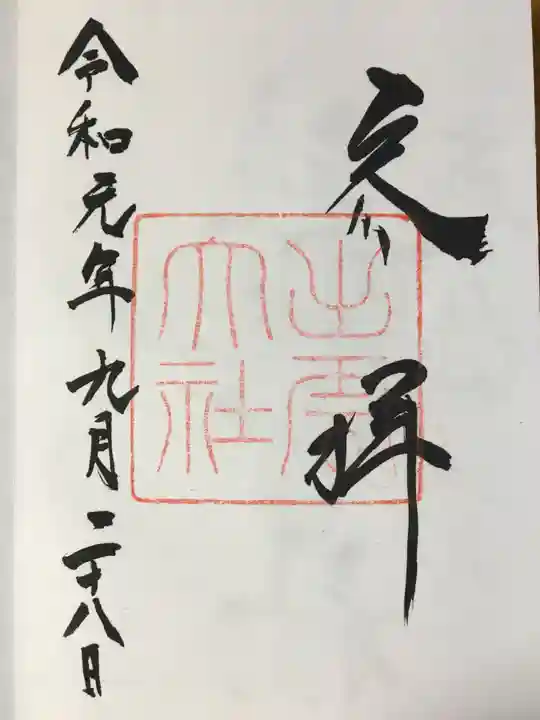 奉拝
出雲大社
令和元年九月二十八日